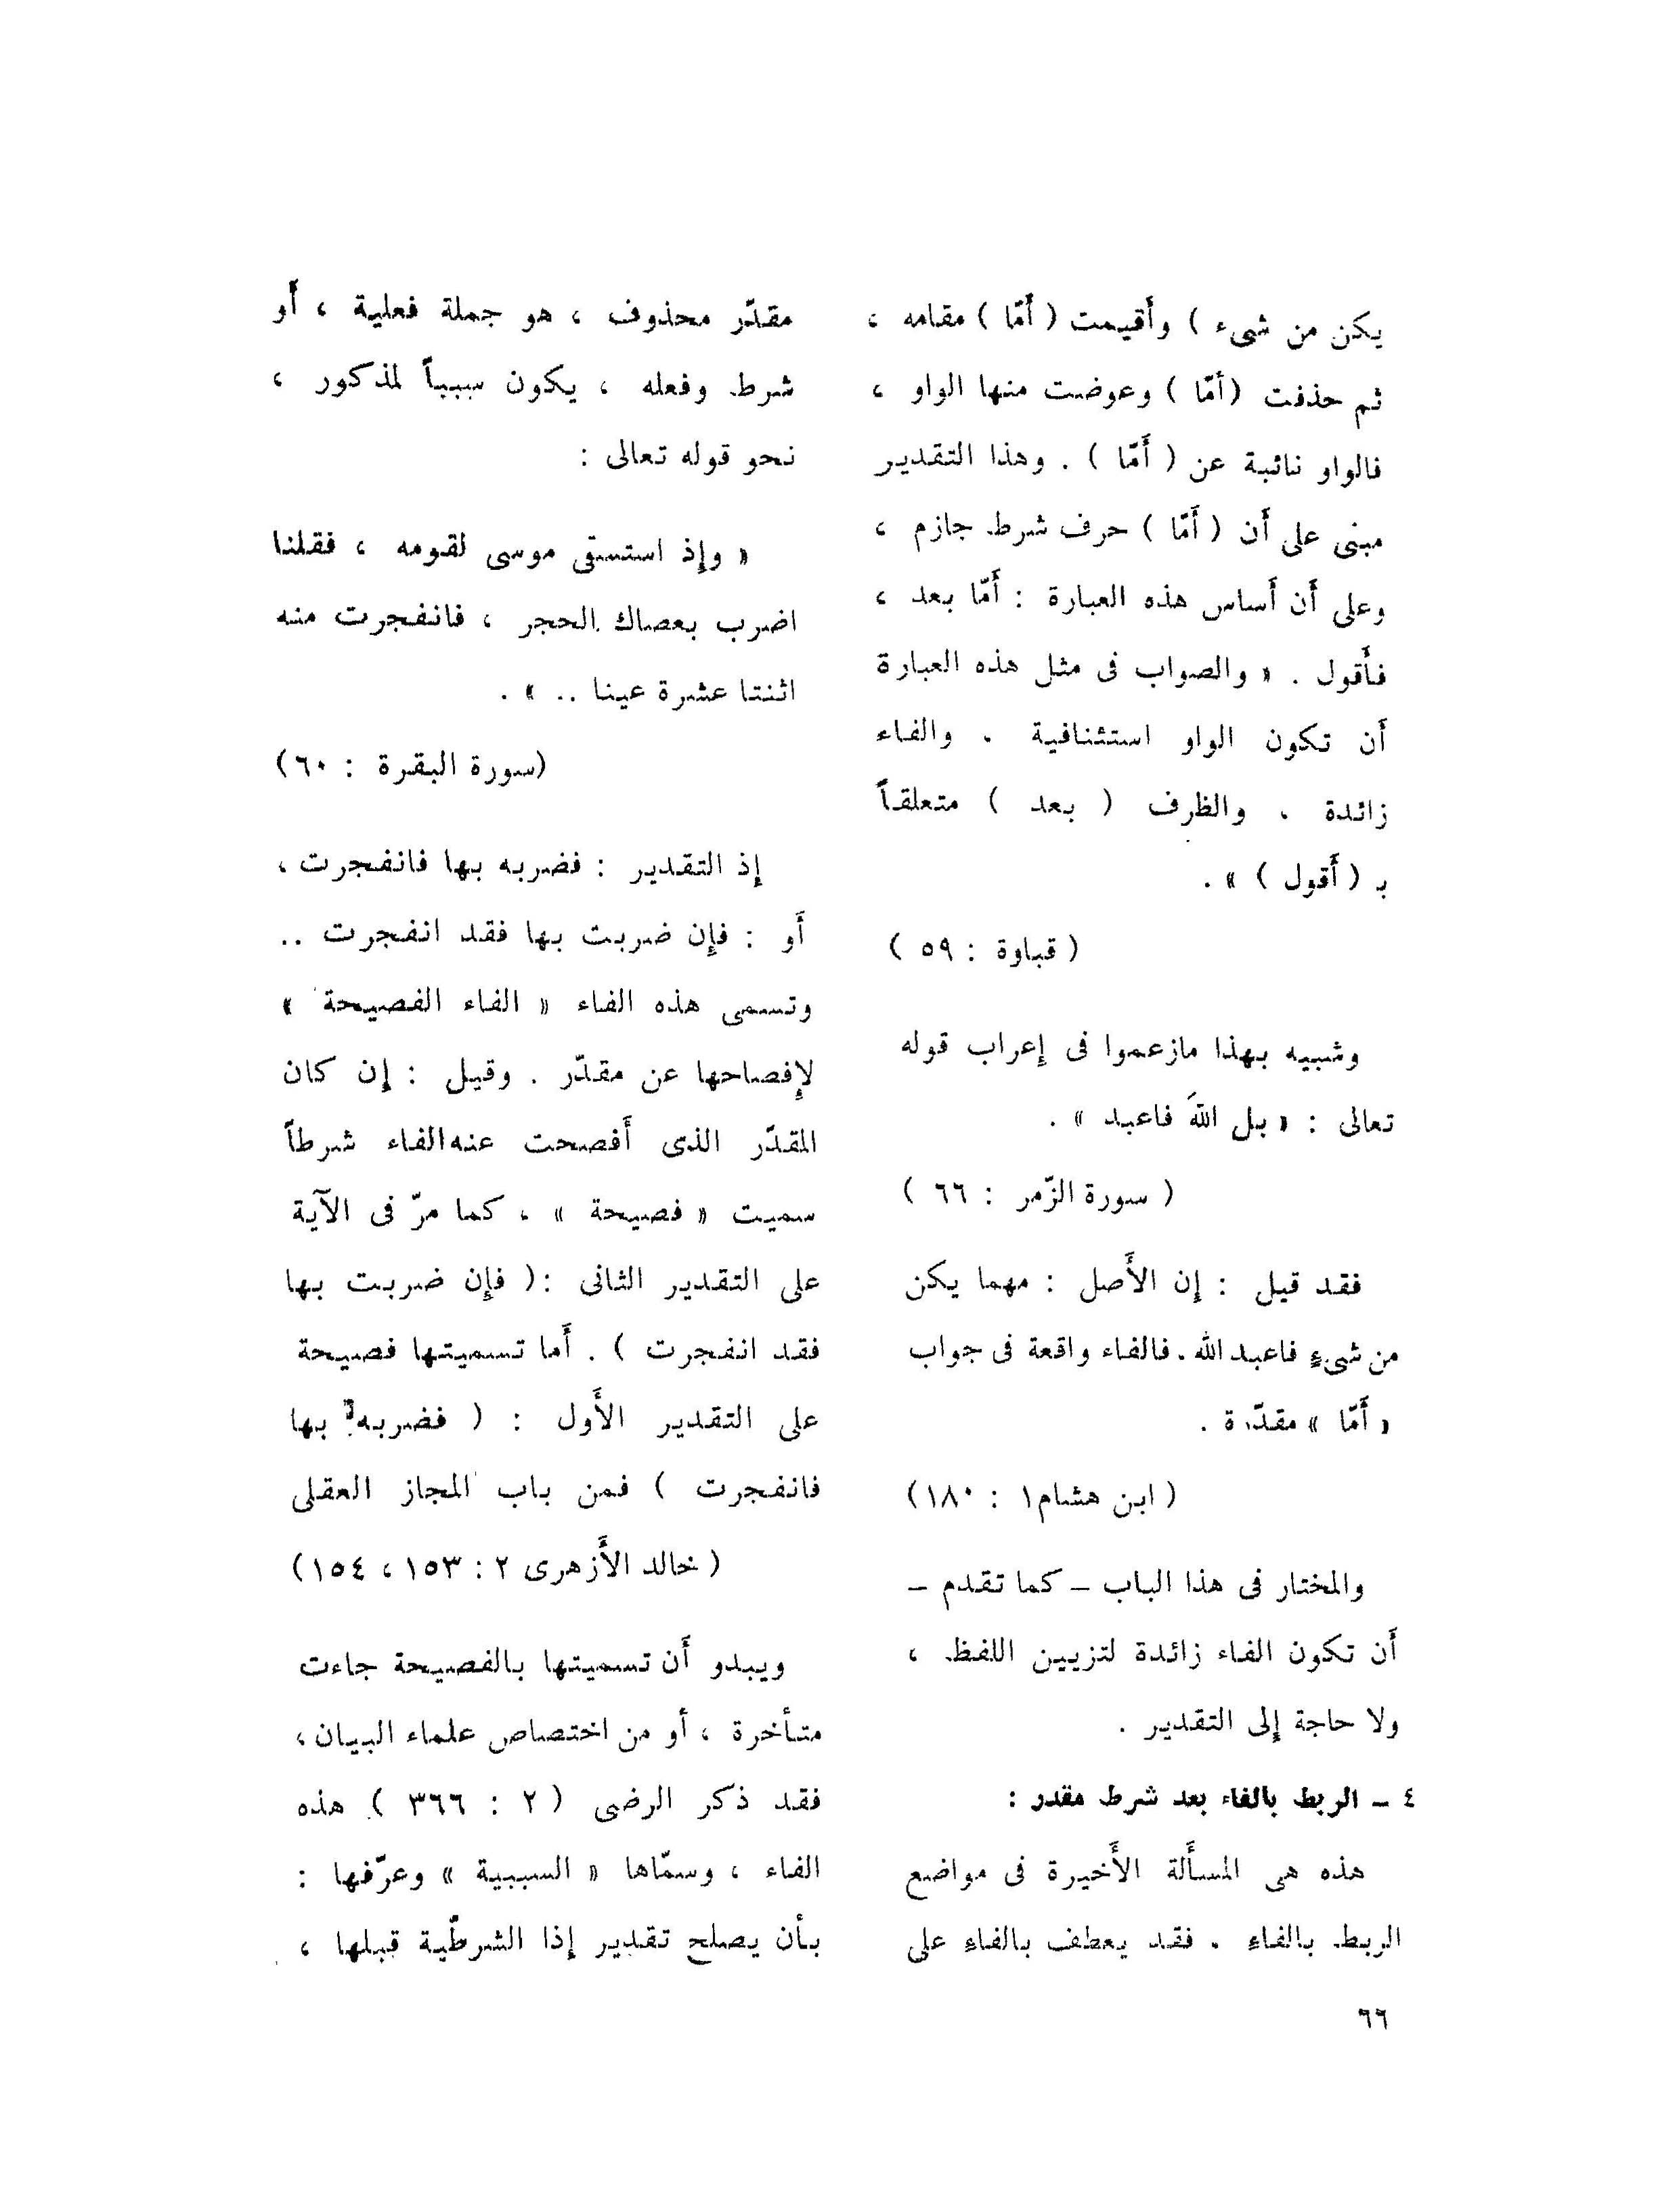 يكن من شىء ) وأَقيمت ( أَمّا ) مقامه ،
ثم حذفت (أمّا ) وعوضت منها الواو ،
فالواو نائبة عن ( أَمّا ) . وهذا التقدير
مبنى على أَن ( أَمّا ) حرف شرط جازم ،
وعلى أَن أَساس هذه العبارة : أَمّا بعد ،
فأَقول . « والصواب فى مثل هذه العبارة
أَن تكون الواو استئنافية . والفاء
زائدة . والظرف ( بعد ) متعلقاً
بـ ( أَقول ) » .
( قباوة : ٥٩ )
وشبيه بهذا مازعموا فى إعراب قوله
تعالى : « بل اللهَ فاعبد » .
( سورة الزّمر : ٦٦ )
فقد قيل : إن الأَصل : مهما يكن
من شىءٍ فاعبد الله . فالفاء واقعة فى جواب
« أَمّا » مقدّرة .
( ابن هشام١ : ١٨٠)
والمختار فى هذا الباب – كما تقدم –
أَن تكون الفاء زائدة لتزيين اللفظ ،
ولا حاجة إلى التقدير .
٤ – الربط بالفاء بعد شرط مقدر :
هذه هى المسأَلة الأَخيرة فى مواضع
الربط بالفاءِ . فقد يعطف بالفاءِ على
مقدّر محذوف ، هو جملة فعلية ، أَو
شرط وفعله ، يكون سبباً لمذكور ،
نحو قوله تعالى :
« وإذ استسقى موسى لقومه ، فقلنا
اضرب بعصاك الحجر ، فانفجرت منه
اثنتا عشرة عينا .. » .
(سورة البقرة : ٦٠)
إذ التقدير : فضربه بها فانفجرت ،
أَو : فإن ضربت بها فقد انفجرت ..
وتسمى هذه الفاء « الفاء الفصيحة »
لإفصاحها عن مقدّر . وقيل : إن كان
المقدّر الذى أَفصحت عنه الفاء شرطاً
سميت « فصيحة » ، كما مرّ فى الآية
على التقدير الثانى :( فإن ضربت بها
فقد انفجرت ) . أَما تسميتها فصيحة
على التقدير الأَول : ( فضربه بها
فانفجرت ) فمن باب المجاز العقلى
( خالد الأَزهرى ٢ : ١٥٣ ، ١٥٤)
ويبدو أَن تسميتها بالفصيحة جاءت
متأخرة ، أو من اختصاص علماء البيان،
فقد ذكر الرضى ( ٢ : ٣٦٦ ) هذه
الفاء ، وسمّاها « السببية » وعرّفها :
بأن يصلح تقدير إذا الشرطّية قبلها ،
٦٦